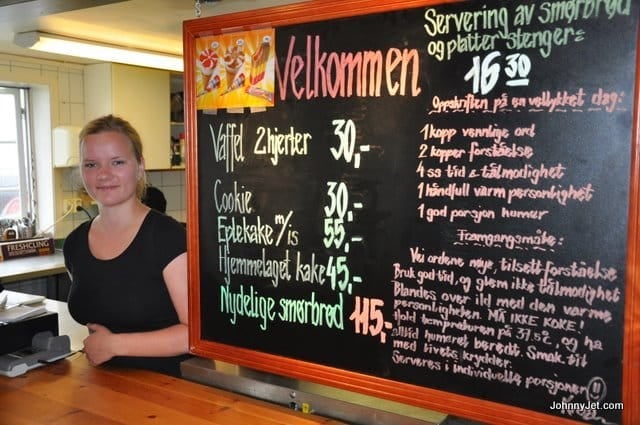 Velkommen
Vaffel 2 hjerter 30,-
Cookie 30,-
Eplekake m/is 55,-
Hjemmelaget kake 45,-
Nydelige smørbrød 115,-
Servering av smørbrød
og platter stenger:
16 30
Oppskriften på en vellykket dag:
1 kopp vennlige ord
2 kopper forståelse
4 ss tid & tålmodighet
1 håndfull varm personlighet
1 god porsjon humor
Framgangsmåte:
Vei ordene nøye, tilsett forståelse
Bruk god tid, og glem ikke tålmodighet
Blandes over ild med den varme
personligheten. MÅ IKKE KOKE!
Hold tempraturen på 37.5c, og ha
alltid humøret beredt. Smak til
med livets krydder.
Serveres i individuelle porsjoner
FRESHCLING
JohnnyJet.com